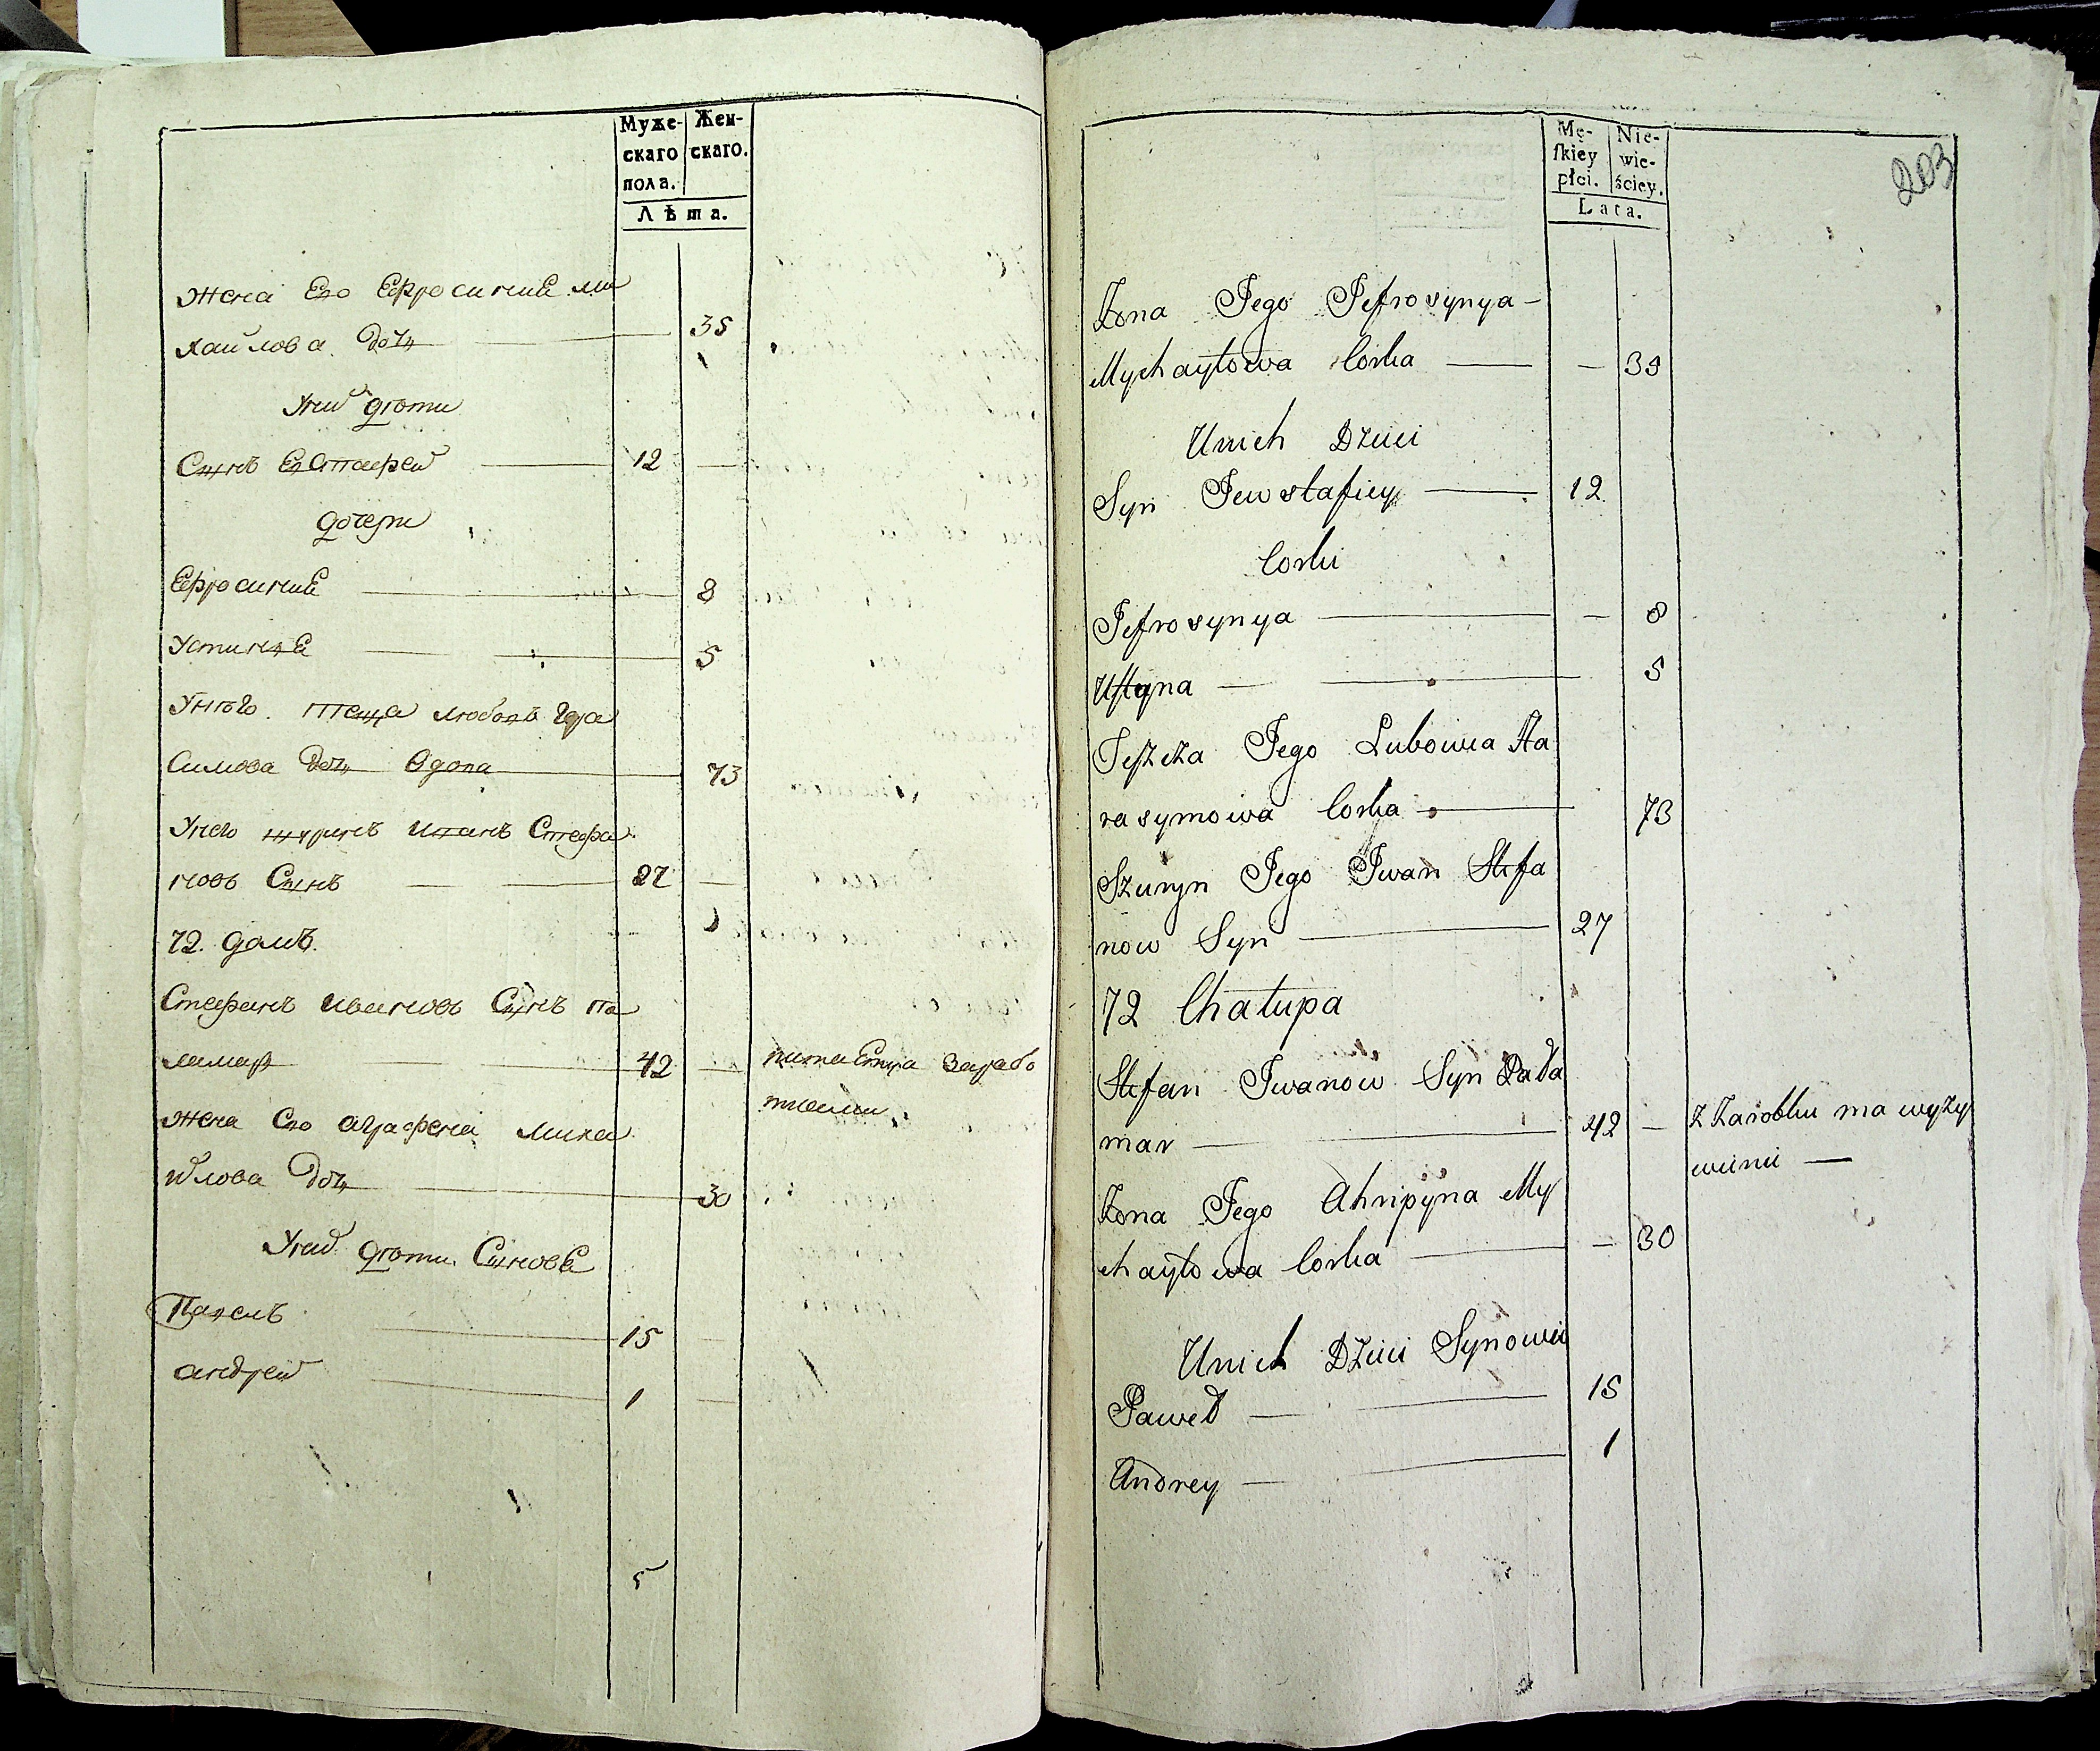 Муже-
скаго
пола.
Жен-
скаго.
Лѣта.
Жена Его Ефросиниѣ ми
хайлова дочь 35
У них дѣти
Сынъ Естафей 12
дочери
Ефросиниѣ 8
Устинѣ 5
У него теща любовь гера
симова дочь вдова 73
У него шуринъ иванъ Стефа
новъ Сынъ 27
72. домъ.
Стефанъ ивановъ Сынъ па
ламар 42 питается зарабо
тками
жена Его аграфена миха
йлова дочь 30
У них дѣти Синовѣ
Павелъ 15
андрей 1
5
203
Mę-
ſkiey
płci.
Nie-
wie-
ściey.
Lata.
Zona Jego Jefrosynya
Mychayłowa Corka 35
Unich Dzieci
Syn Jewstafiey 12
Corki
Jefrosynya 8
Uſtyna 5
Teſzcza Jego Lubowia Ha
rasymowa Corka 73
Szuryn Jego Jwan Stefa
now Syn 27
72 Chałupa
Stefan Jwanow Syn Pała
mar 42 z Zarobku ma wyży
wieni
Zona Jego Ahripyna My
chayłowa Corka 30
Unich Dzieci Synowie
Paweł 15
Andrey 1